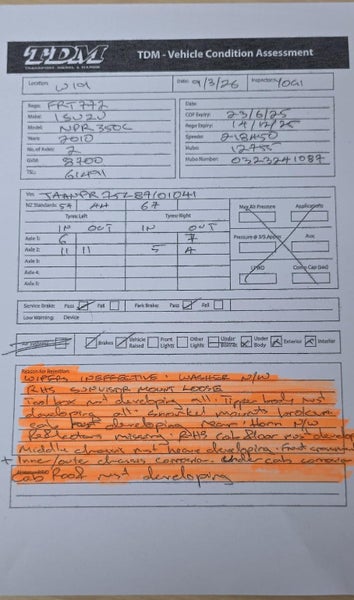 TDM
TDM - Vehicle Condition Assessment
Location: W101 Date: 9/3/26 Inspector: YOGI
Rego: FRT772
Make: ISUZU
Model: NPR 350C
Year: 2010
No. of Axles: 2
GVM: 8700
TSL: 61491
Date:
COF Expiry: 23/6/25
Rego Expiry: 14/12/25
Speedo: 218450
Hubo: 12455
Hubo Number: 0323241087
Vin:
NZ Standards: 54 44 67
Tyres:Left Tyres:Right
IN OUT IN OUT
Axle 1: 6 7
Axle 2: 11 11 5 4
Axle 3:
Axle 4:
Axle 5:
Max Air Pressure Applications
Pressure @ 3/5 Appns Aux:
Service Brake: Pass Fail Park Brake: Pass Fail
Low Warning: Device
Brakes Vehicle Raised Front Lights Other Lights Under Bonnet Under Body Exterior Interior
Reason for Rejection:
WIPERS INEFFECTIVE. WASHER N/W
RHS SUNVISOR MOUNT LOOSE
Tool box rust developing all. Tipper body rust
developing all. Snorkel mounts broken
cab rust developing rear. Horn N/W
Reflectors missing. RHS Cab floor rust develop
Middle chassis rust heave developing. Front crossmember
+ Inner/outer chassis corrosion. Under cab corrosion
Cab Roof rust developing